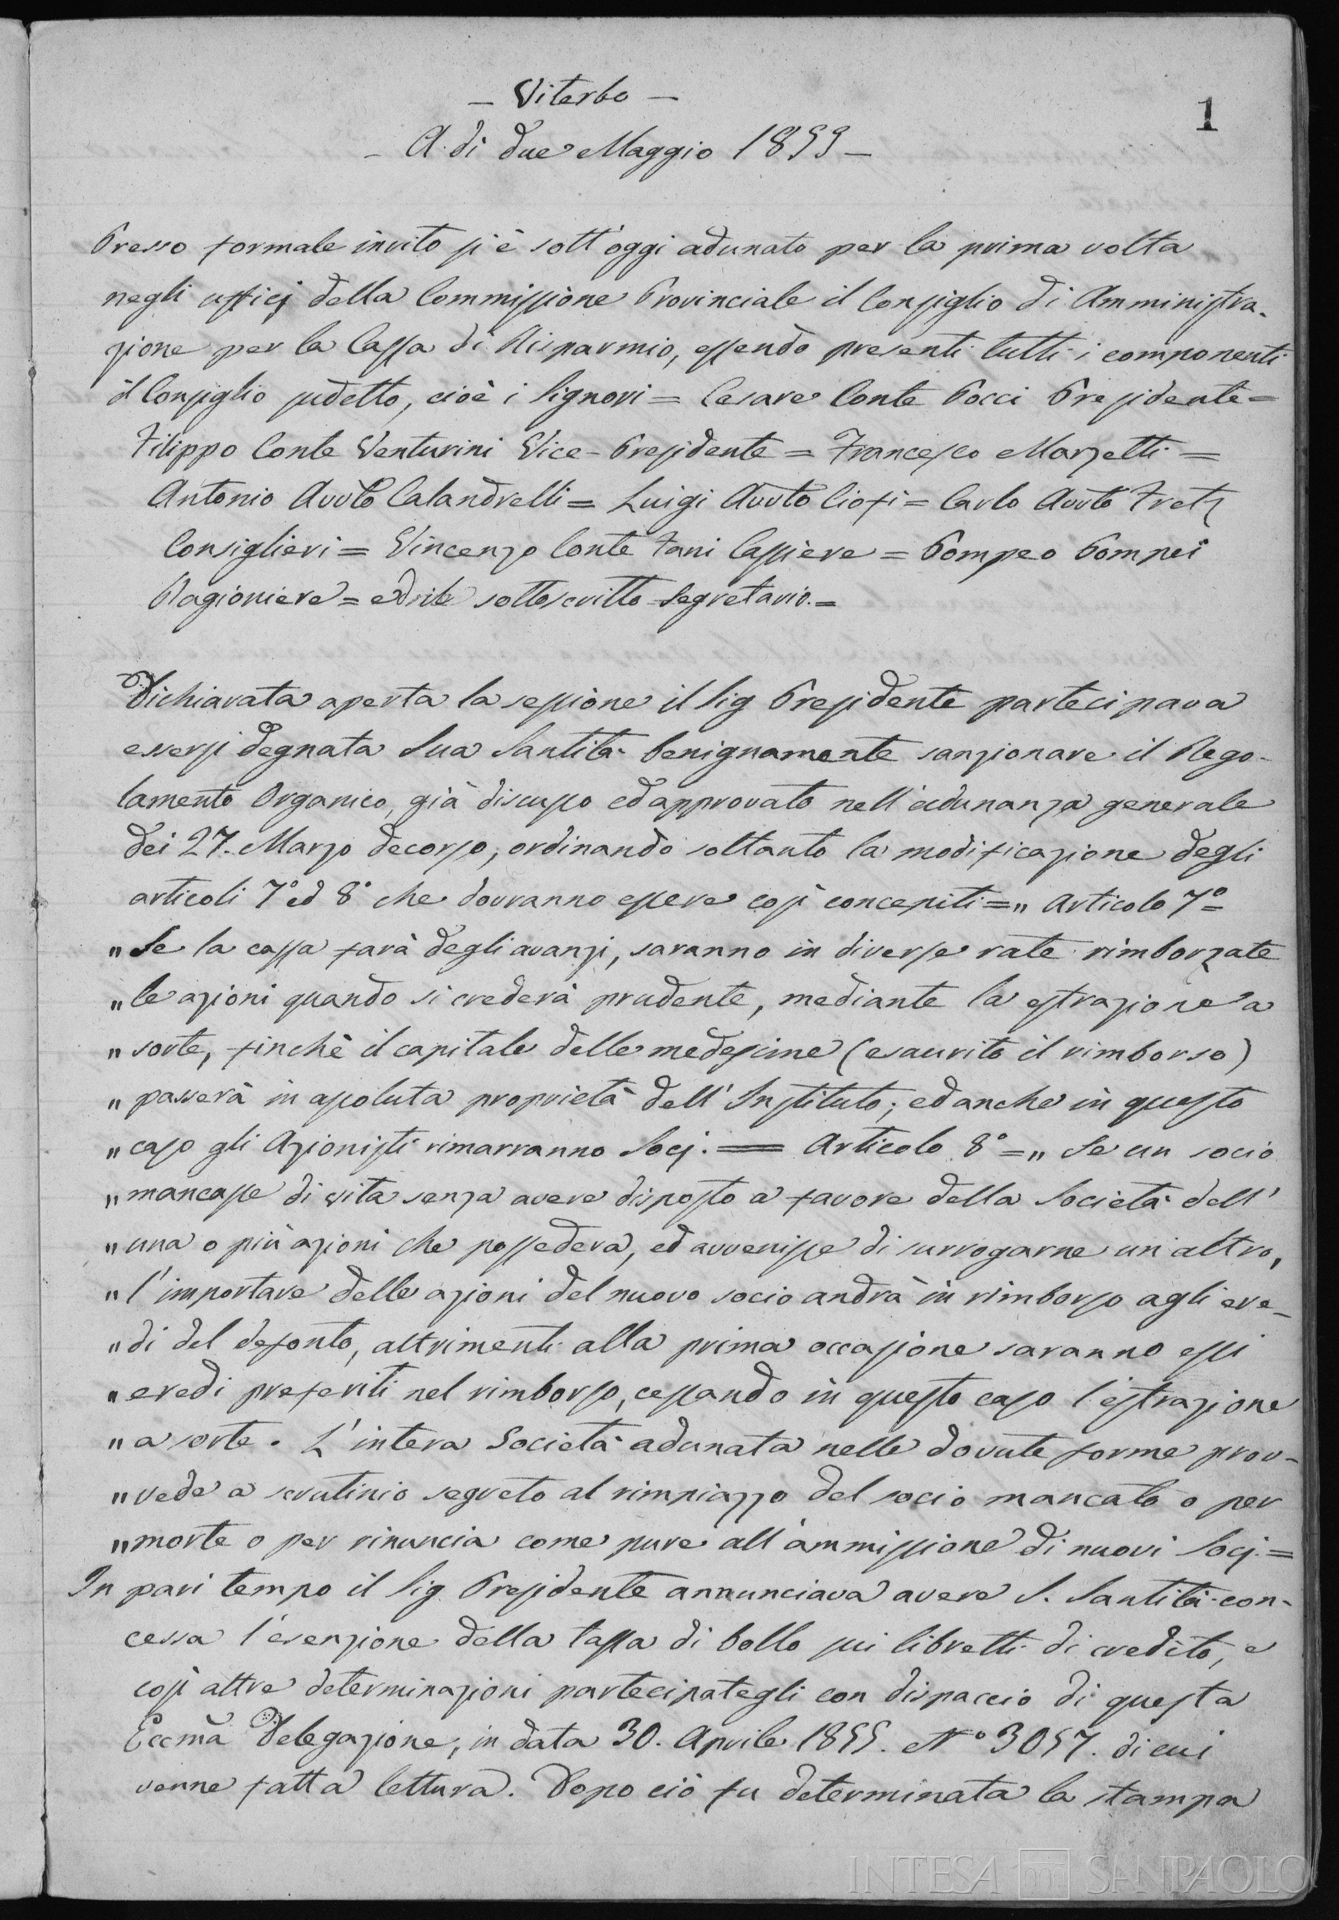 1
— Viterbo —
— A dì due Maggio 1855 —
Presso formale invito si è sott'oggi adunato per la prima volta
negli officj della Commissione Provinciale il Consiglio di Amministra-
zione per la Cassa di Risparmio, essendo presenti tutti i componenti
il Consiglio sudetto, cioè i Signori = Cesare Conte Pocci Presidente =
Filippo Conte Venturini Vice-Presidente = Francesco Marzetti =
Antonio Avvto Calandrelli = Luigi Avvto Ciofi = Carlo Avvto Fretz
Consiglieri = Vincenzo Conte Fani Cassiere = Pompeo Pompei
Ragioniere = sottoscritto Segretario. =
Dichiarata aperta la sessione il Sig Presidente partecipava
essersi degnata Sua Santità benignamente sanzionare il Rego-
lamento Organico, già discusso ed approvato nell'adunanza generale
dei 27. Marzo decorso, ordinando soltanto la modificazione degli
articoli 7° ed 8° che dovranno essere così concepiti = „ Articolo 7° =
„ Se la cassa farà degli avanzi, saranno in diverse rate rimborzate
„ le azioni quando si crederà prudente, mediante la estrazione a
„ sorte, finchè il capitale delle medesime (esaurito il rimborso)
„ passerà in assoluta proprietà dell'Instituto; ed anche in questo
„ caso gli Azionisti rimarranno Socj. = Articolo 8° = „ Se un socio
„ mancasse di vita senza avere disposto a favore della Società dell'
„ una o più azioni che possedeva, ed avvenisse di surrogarne un'altro,
„ l'importare delle azioni del nuovo socio andrà in rimborso agli ere-
„ di del defonto, altrimenti alla prima occasione saranno essi
„ eredi preferiti nel rimborso, cessando in questo caso l'estrazione
„ a sorte. L'intera Società adunata nelle dovute forme prov-
„ vede a scrutinio segreto al rimpiazzo del socio mancato o per
„ morte o per rinuncia come pure all'ammissione di nuovi Socj. =
In pari tempo il Sig Presidente annunciava avere S. Santità con-
cessa l'esenzione della tassa di bollo sui libretti di credito, e
così altre determinazioni partecipategli con dispaccio di questa
Eccma Delegazione, in data 30. Aprile 1855. N° 3057. di cui
venne fatta lettura. Dopo ciò fu determinata la stampa
INTESA SANPAOLO